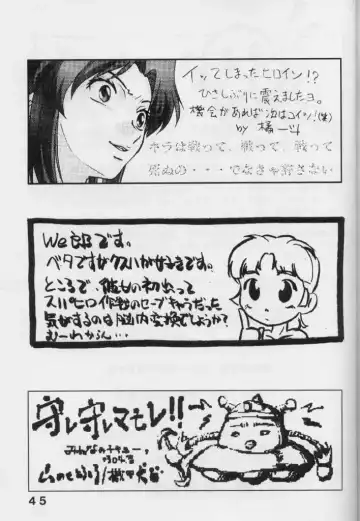 イッてしまったヒロイン!?
ひさしぶりに震えましたヨ。
機会があれば次はコイツ!(笑)
by 橘一斗
ホラは戦って、戦って、戦って
死ぬの・・・でなきゃ許さない
We郎です。
ベタですがクスハが好きです。
ところで、彼女の初出って
スパヒロ作戦のセーブキャラだった
気がするのは脳内変換でしょうか?
むーわからん…
守レ守レマモレ!!
みんなのチキュー。
45